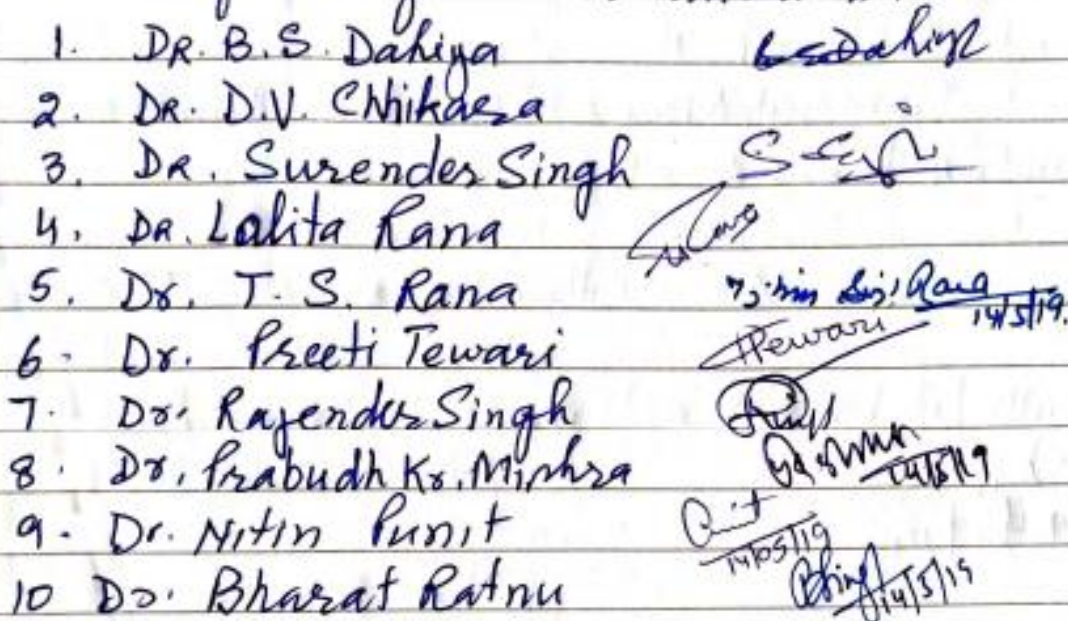 1. DR. B.S. Dahiya BSDahiya
2. DR. D.V. Chhikara
3. DR. Surender Singh
4. DR. Lalita Rana
5. Dr. T. S. Rana Rana 14/5/19.
6. Dr. Preeti Tewari PTewari
7. Dr. Rajender Singh
8. Dr. Prabudh Kr. Mishra 14/5/19
9. Dr. Nitin Punit 14/05/19
10 Dr. Bharat Ratnu 14/5/19